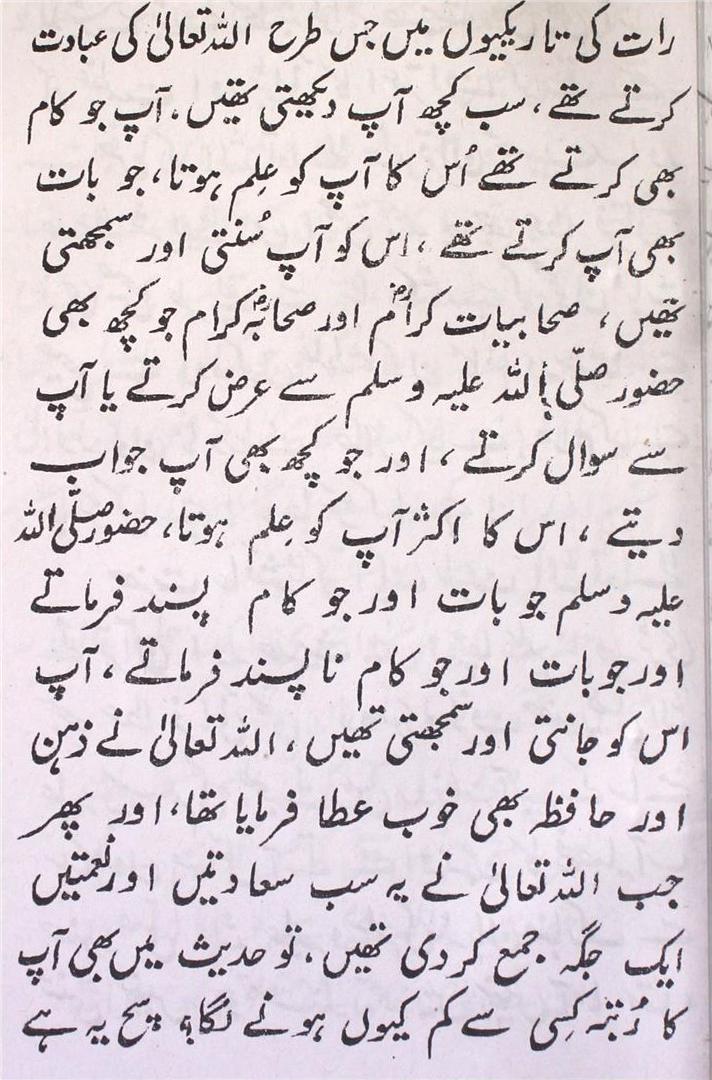 رات کی تاریکیوں میں جس طرح اللہ تعالیٰ کی عبادت
کرتے تھے، سب کچھ آپ دیکھتی تھیں۔ آپ جو کام
بھی کرتے تھے اُس کا آپ کو عِلم ہوتا، جو بات
بھی آپ کرتے تھے، اس کو آپ سُنتی اور سمجھتی
تھیں، صحابیات کرامؓ اور صحابہؓ کرام جو کچھ بھی
حضور صلّی اللہ علیہ وسلم سے عرض کرتے یا آپ
سے سوال کرتے، اور جو کچھ بھی آپ جواب
دیتے، اس کا اکثر آپ کو عِلم ہوتا، حضور صلّی اللہ
علیہ وسلم جو بات اور جو کام پسند فرماتے
اور جو بات اور جو کام ناپسند فرماتے، آپ
اس کو جانتی اور سمجھتی تھیں، اللہ تعالیٰ نے ذہن
اور حافظہ بھی خوب عطا فرمایا تھا، اور پھر
جب اللہ تعالیٰ نے یہ سب سعادتیں اور نعمتیں
ایک جگہ جمع کر دی تھیں، تو حدیث میں بھی آپ
کا رُتبہ کِسی سے کم کیوں ہونے لگا؟ سچ یہ ہے